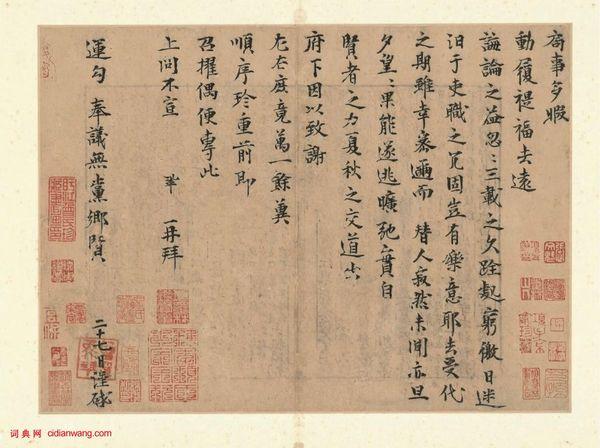 局事多暇
動履禔福去遠
誨論之益忽〻三載之久跧處窮徼日迷
汨于吏職之冗固豈有樂意耶去受代
之期雖幸密邇而 替人寂然未聞亦旦
夕望〻果能遂逃曠弛之責自
賢者之力夏秋之交道出
府下因以致謝
左右庶竟萬一餘冀
順序珍重前即
召擢偶便專此
上問不宣 鞏 再拜
運勾奉議無黨鄉賢
二十七日謹啟
词典网 cidianwang.com